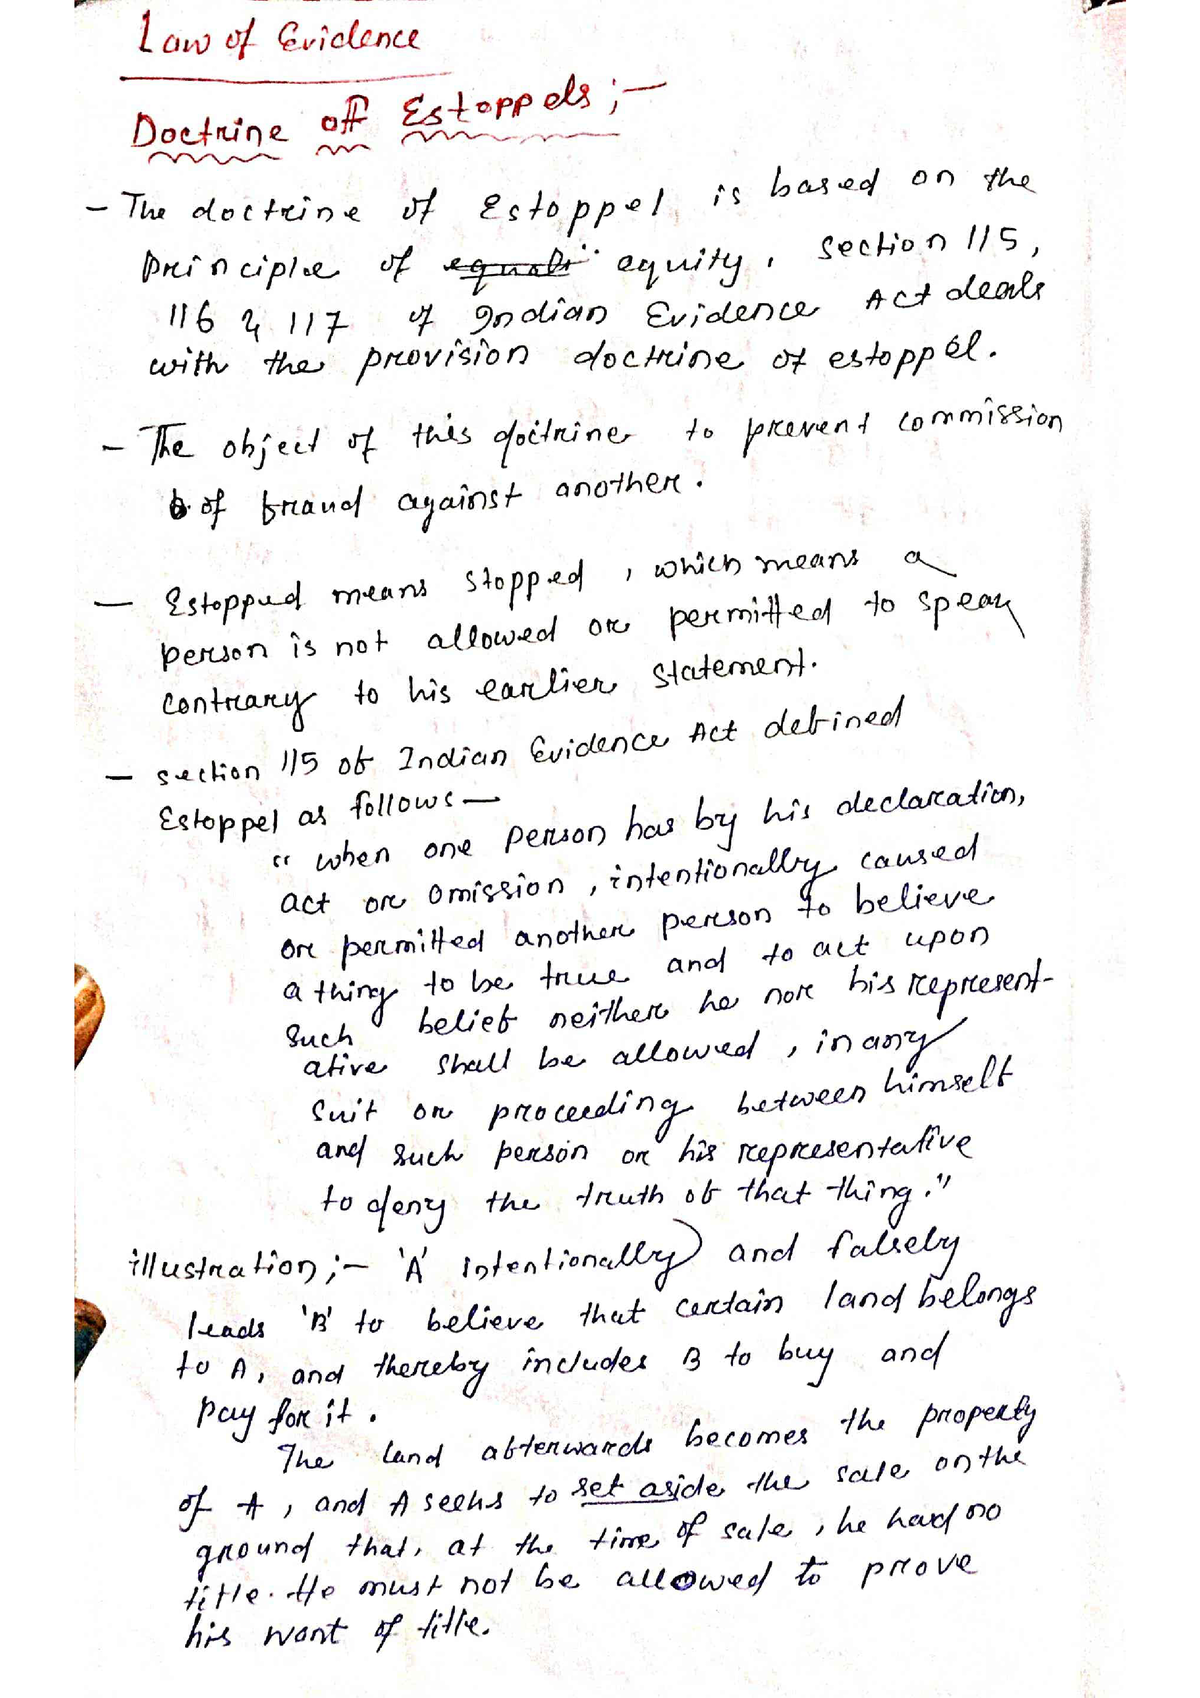 Law of Evidence
Doctrine off Estoppels ;-
- The doctrine of Estoppel is based on the
principle of equity, section 115,
116 & 117 of Indian Evidence Act deals
with the provision doctrine of estoppel.
- The object of this doctrine to prevent commission
of fraud against another.
- Estopped means stopped, which means a
person is not allowed or permitted to speak
contrary to his earlier statement.
- section 115 of Indian Evidence Act defined
Estoppel as follows -
" when one person has by his declaration,
act or omission, intentionally caused
or permitted another person to believe
a thing to be true and to act upon
such belief neither he nor his represent-
ative shall be allowed, in any
suit or proceeding between himself
and such person or his representative
to deny the truth of that thing."
illustration ;- 'A' intentionally and falsely
leads 'B' to believe that certain land belongs
to A, and thereby includes B to buy and
pay for it.
The land afterwards becomes the property
of A, and A seeks to set aside the sale on the
ground that, at the time of sale, he had no
title. He must not be allowed to prove
his want of title.